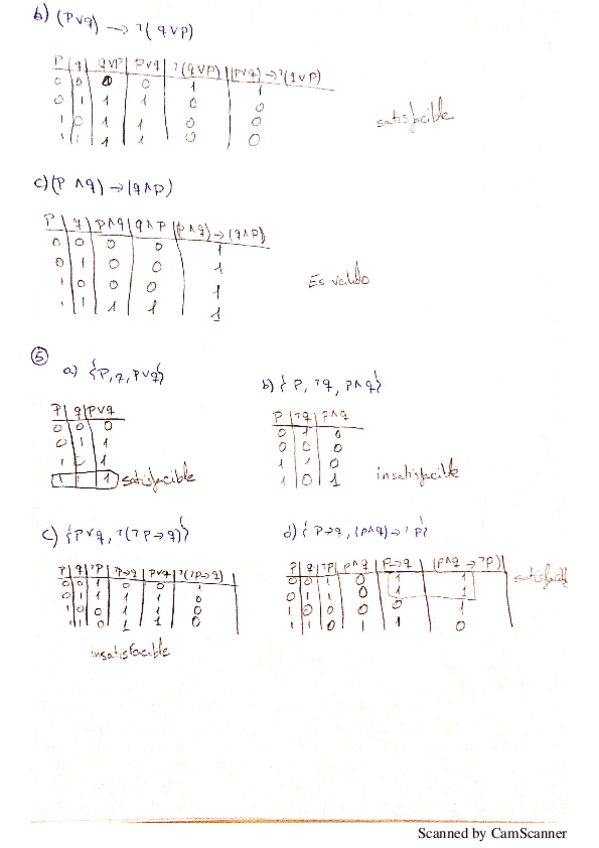 b) (p∨q) → ¬(q∨p)
p | q | q∨p | p∨q | ¬(q∨p) | (p∨q)→¬(q∨p)
0 0 0 0 1 1
0 1 1 1 0 0
1 0 1 1 0 0
1 1 1 1 0 0
satisfacible
c) (p ∧q) → (q∧p)
p | q | p∧q | q∧p | (p∧q)→(q∧p)
0 0 0 0 1
0 1 0 0 1
1 0 0 0 1
1 1 1 1 1
Es valido
⑤
a) {p, q, p∨q}
p | q | p∨q
0 0 0
0 1 1
1 0 1
1 1 1 satisfacible
b) { p, ¬q, p∧q}
p | ¬q | p∧q
0 1 0
0 0 0
1 1 0
1 0 1
insatisfacible
c) {p∨q, ¬(¬p→q)}
p | q | ¬p | ¬p→q | p∨q | ¬(¬p→q)
0 0 1 0 0 1
0 1 1 1 1 0
1 0 0 1 1 0
1 1 0 1 1 0
insatisfacible
d) { p→q, (p∧q)→¬p}
p | q | ¬p | p∧q | p→q | (p∧q →¬p)
0 0 1 0 1 1
0 1 1 0 1 1
1 0 0 0 0 1
1 1 0 1 1 0
Scanned by CamScanner